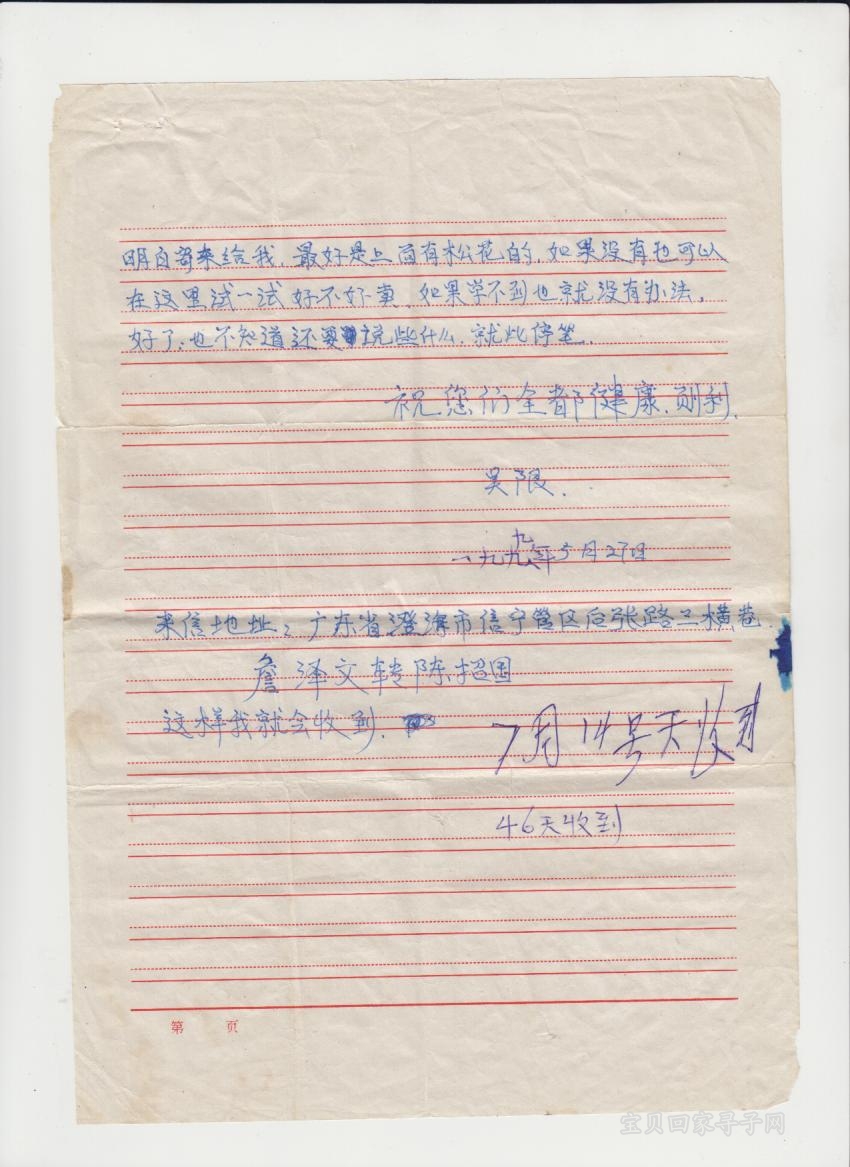 明白寄来给我。最好是上面有松花的。如果没有也可以
在这里试一试好不好卖。如果学不到也就没有办法。
好了。也不知道还要说些什么。就此停笔。
祝您们全都健康.顺利.
吴限.
一九九九年5月27日
来信地址：广东省澄海市信宁管区后张路二横巷.
詹泽文转陈超国
这样我就会收到.
7月14号天收到
46天收到
第 页
宝贝回家寻子网